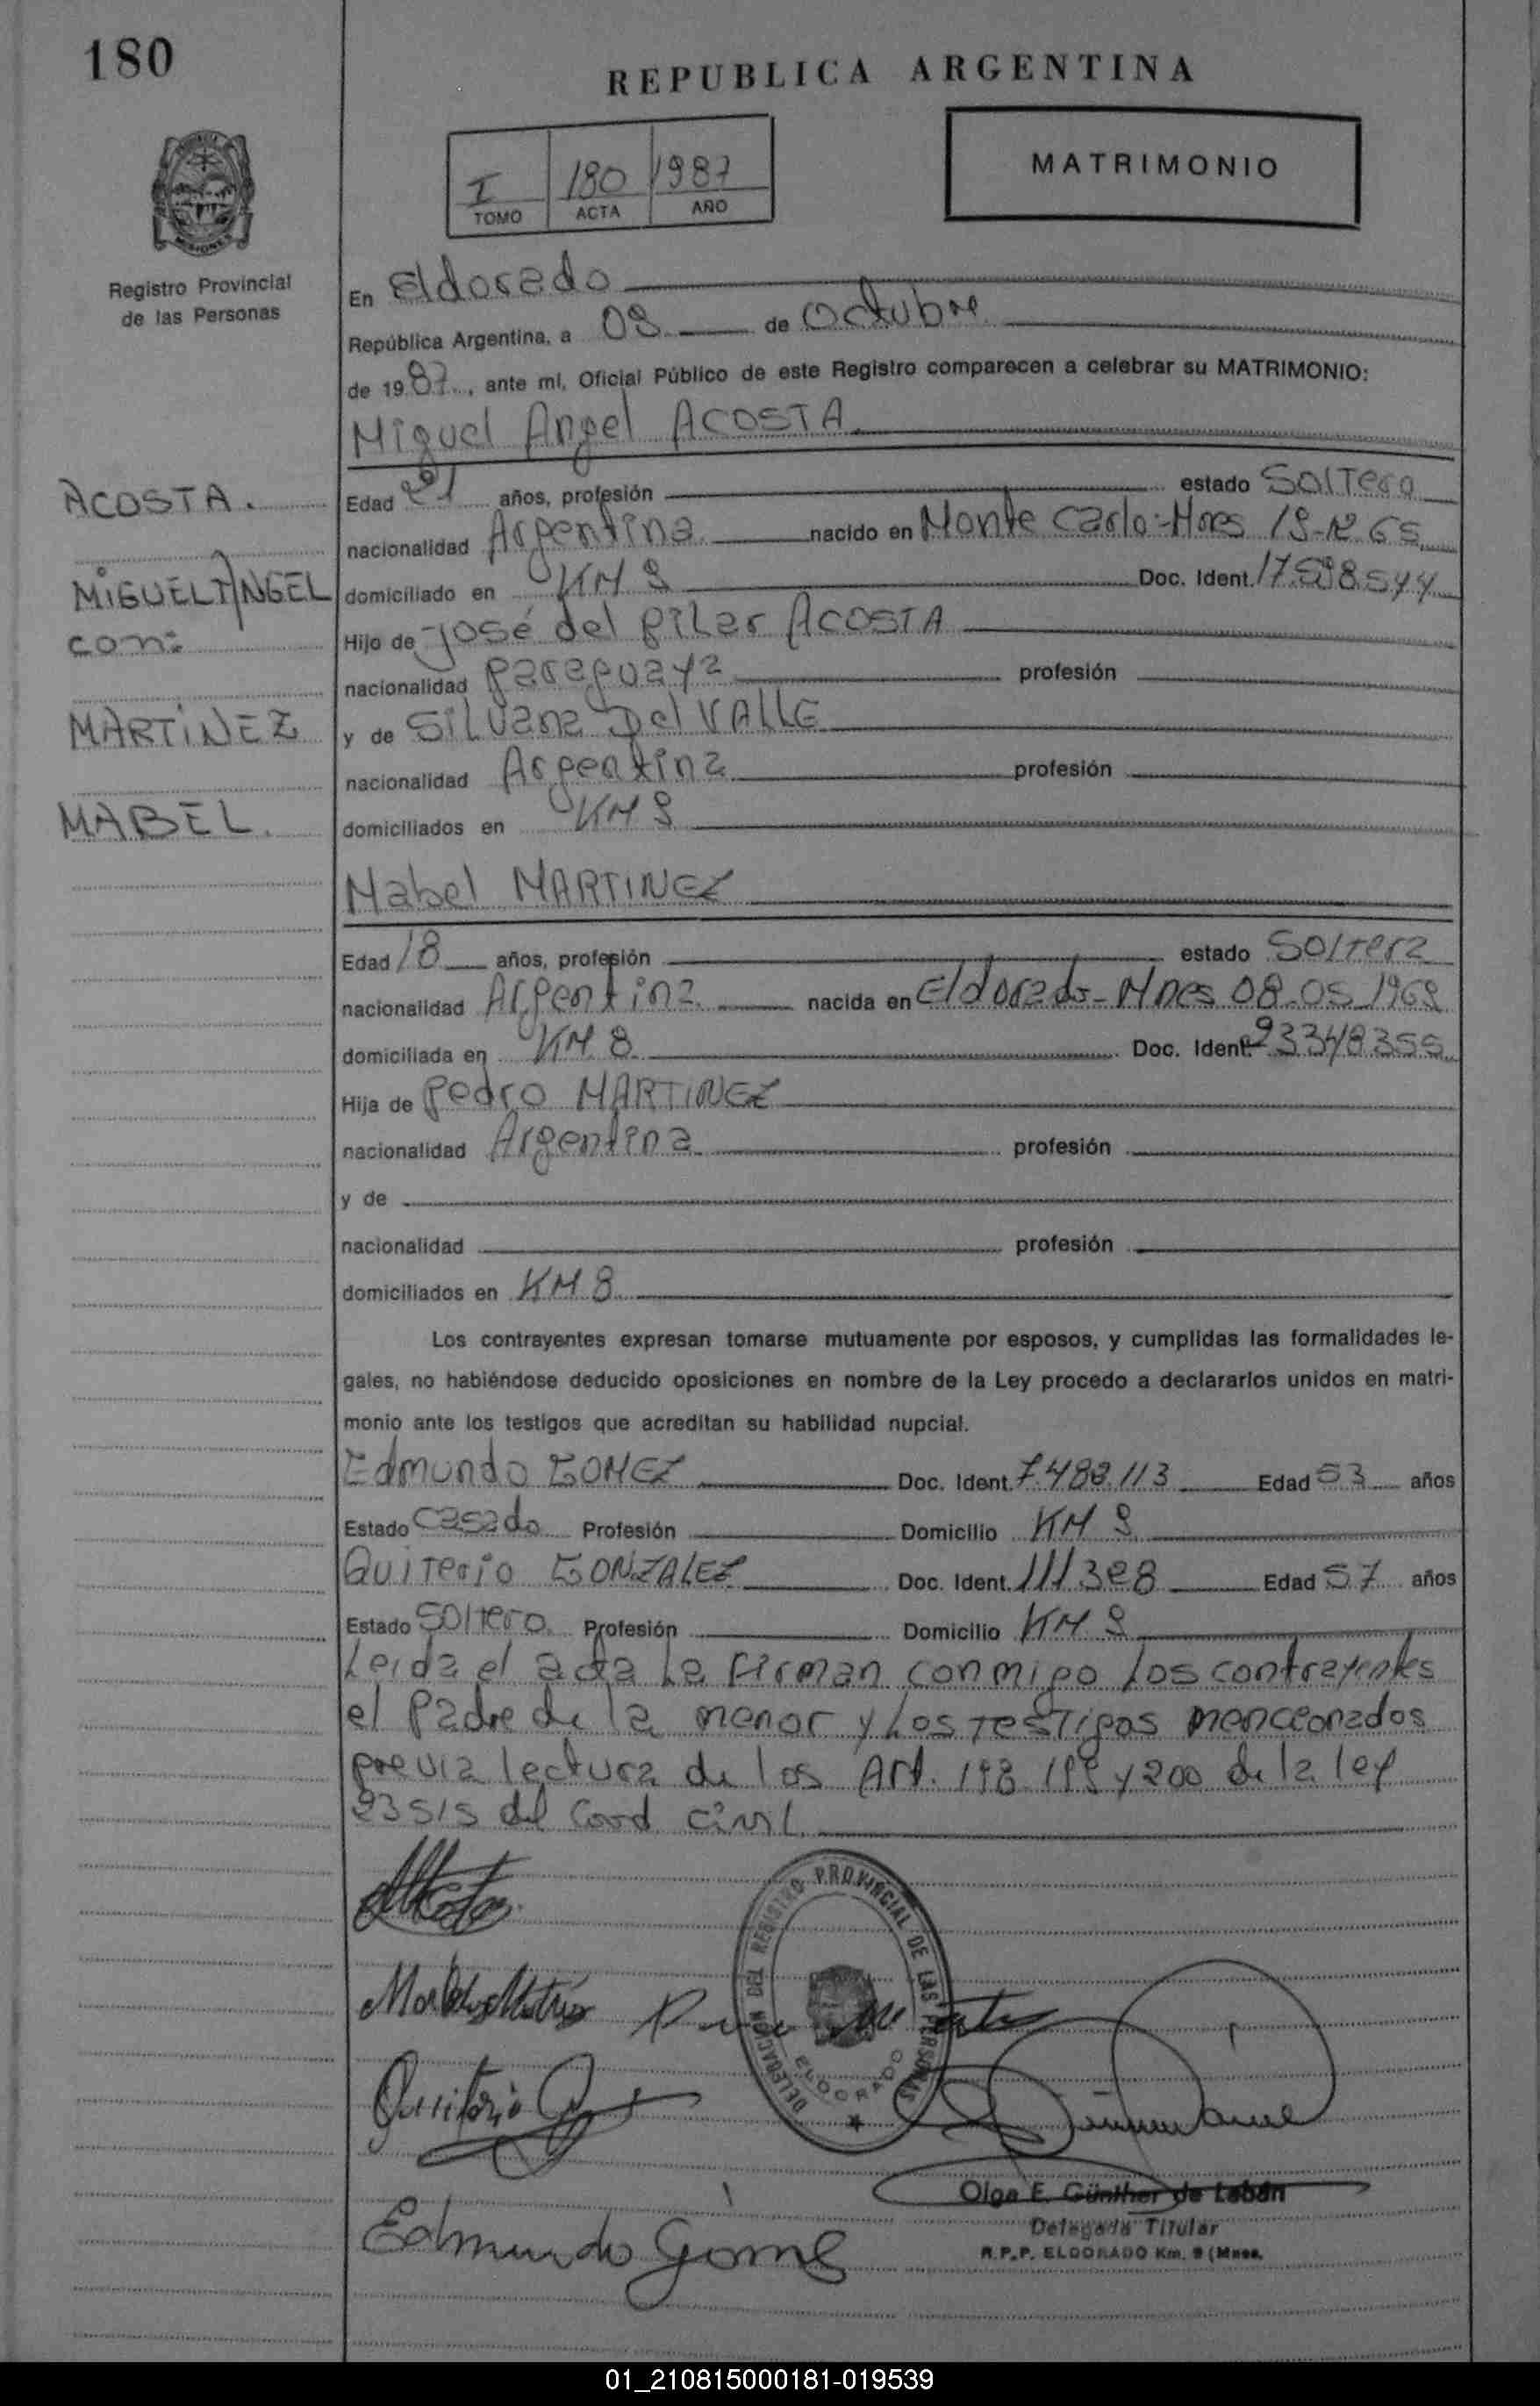 180
REPUBLICA ARGENTINA
I 180 1987
TOMO ACTA AÑO
MATRIMONIO
Registro Provincial
de las Personas
En Eldorado
República Argentina, a 09 de Octubre
de 1987, ante mí, Oficial Público de este Registro comparecen a celebrar su MATRIMONIO:
Miguel Angel ACOSTA
ACOSTA.
MIGUEL ANGEL
con:
MARTINEZ
MABEL.
Edad 21 años, profesión estado Soltero
nacionalidad Argentina nacido en Monte Carlo-Mnes 19-12 65
domiciliado en KM 9 Doc. Ident. 17.598.544
Hijo de José del Pilar ACOSTA
nacionalidad paraguaya profesión
y de Silvana Del VALLE
nacionalidad Argentina profesión
domiciliados en KM 9
Mabel MARTINEZ
Edad 18 años, profesión estado Soltera
nacionalidad Argentina nacida en Eldorado-Mnes 08-05 1969
domiciliada en KM 8 Doc. Ident. 93348355
Hija de Pedro MARTINEZ
nacionalidad Argentina profesión
y de
nacionalidad profesión
domiciliados en KM 8
Los contrayentes expresan tomarse mutuamente por esposos, y cumplidas las formalidades le-
gales, no habiéndose deducido oposiciones en nombre de la Ley procedo a declararlos unidos en matri-
monio ante los testigos que acreditan su habilidad nupcial.
Edmundo GOMEZ Doc. Ident. 7.488.113 Edad 53 años
Estado Casado Profesión Domicilio KM 9
Quiterio GONZALEZ Doc. Ident. 111.328 Edad 57 años
Estado Soltero Profesión Domicilio KM 9
Leida el acta la firman conmigo los contrayentes
el padre de la menor y los testigos mencionados
previa lectura de los Art. 198 199 y 200 de la ley
23515 del Cood civil
DELEGACION DEL REGISTRO PROVINCIAL DE LAS PERSONAS
ELDORADO
Quiterio
Olga E. Günther de Labán
Delegada Titular
R.P.P. ELDORADO Km. 9 (Mnes.
Edmundo Gómez
01_210815000181-019539